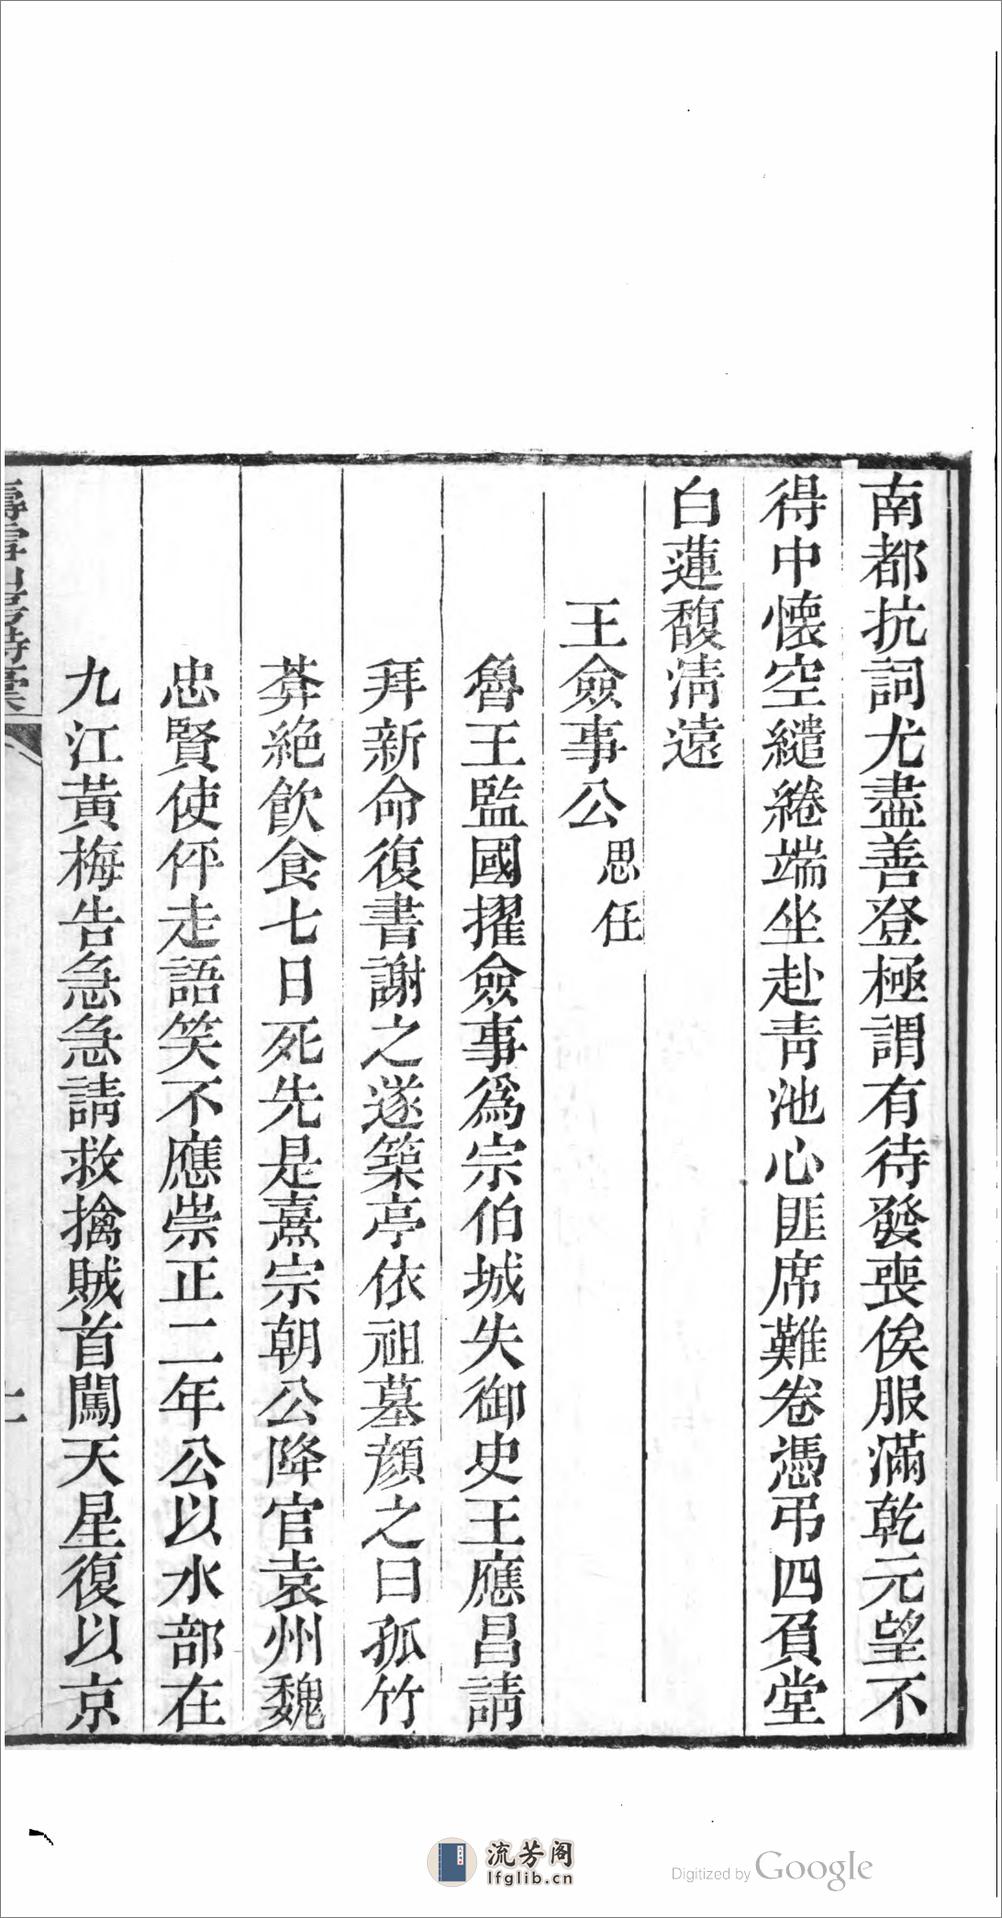 南都抗詞尤盡善登極謂有待發喪俟服滿乾元望不
得中懷空繾綣端坐赴靑池心匪席難卷憑弔四負堂
白蓮馥淸遠
王僉事公思任
魯王監國擢僉事爲宗伯城失御史王應昌請
拜新命復書謝之遂築亭依祖墓顏之曰孤竹
莽絶飮食七日死先是熹宗朝公降官袁州魏
忠賢使伻走語笑不應崇正二年公以水部在
九江黃梅告急急請救擒賊首闖天星復以京
流芳阁
lfglib.cn
Digitized by Google